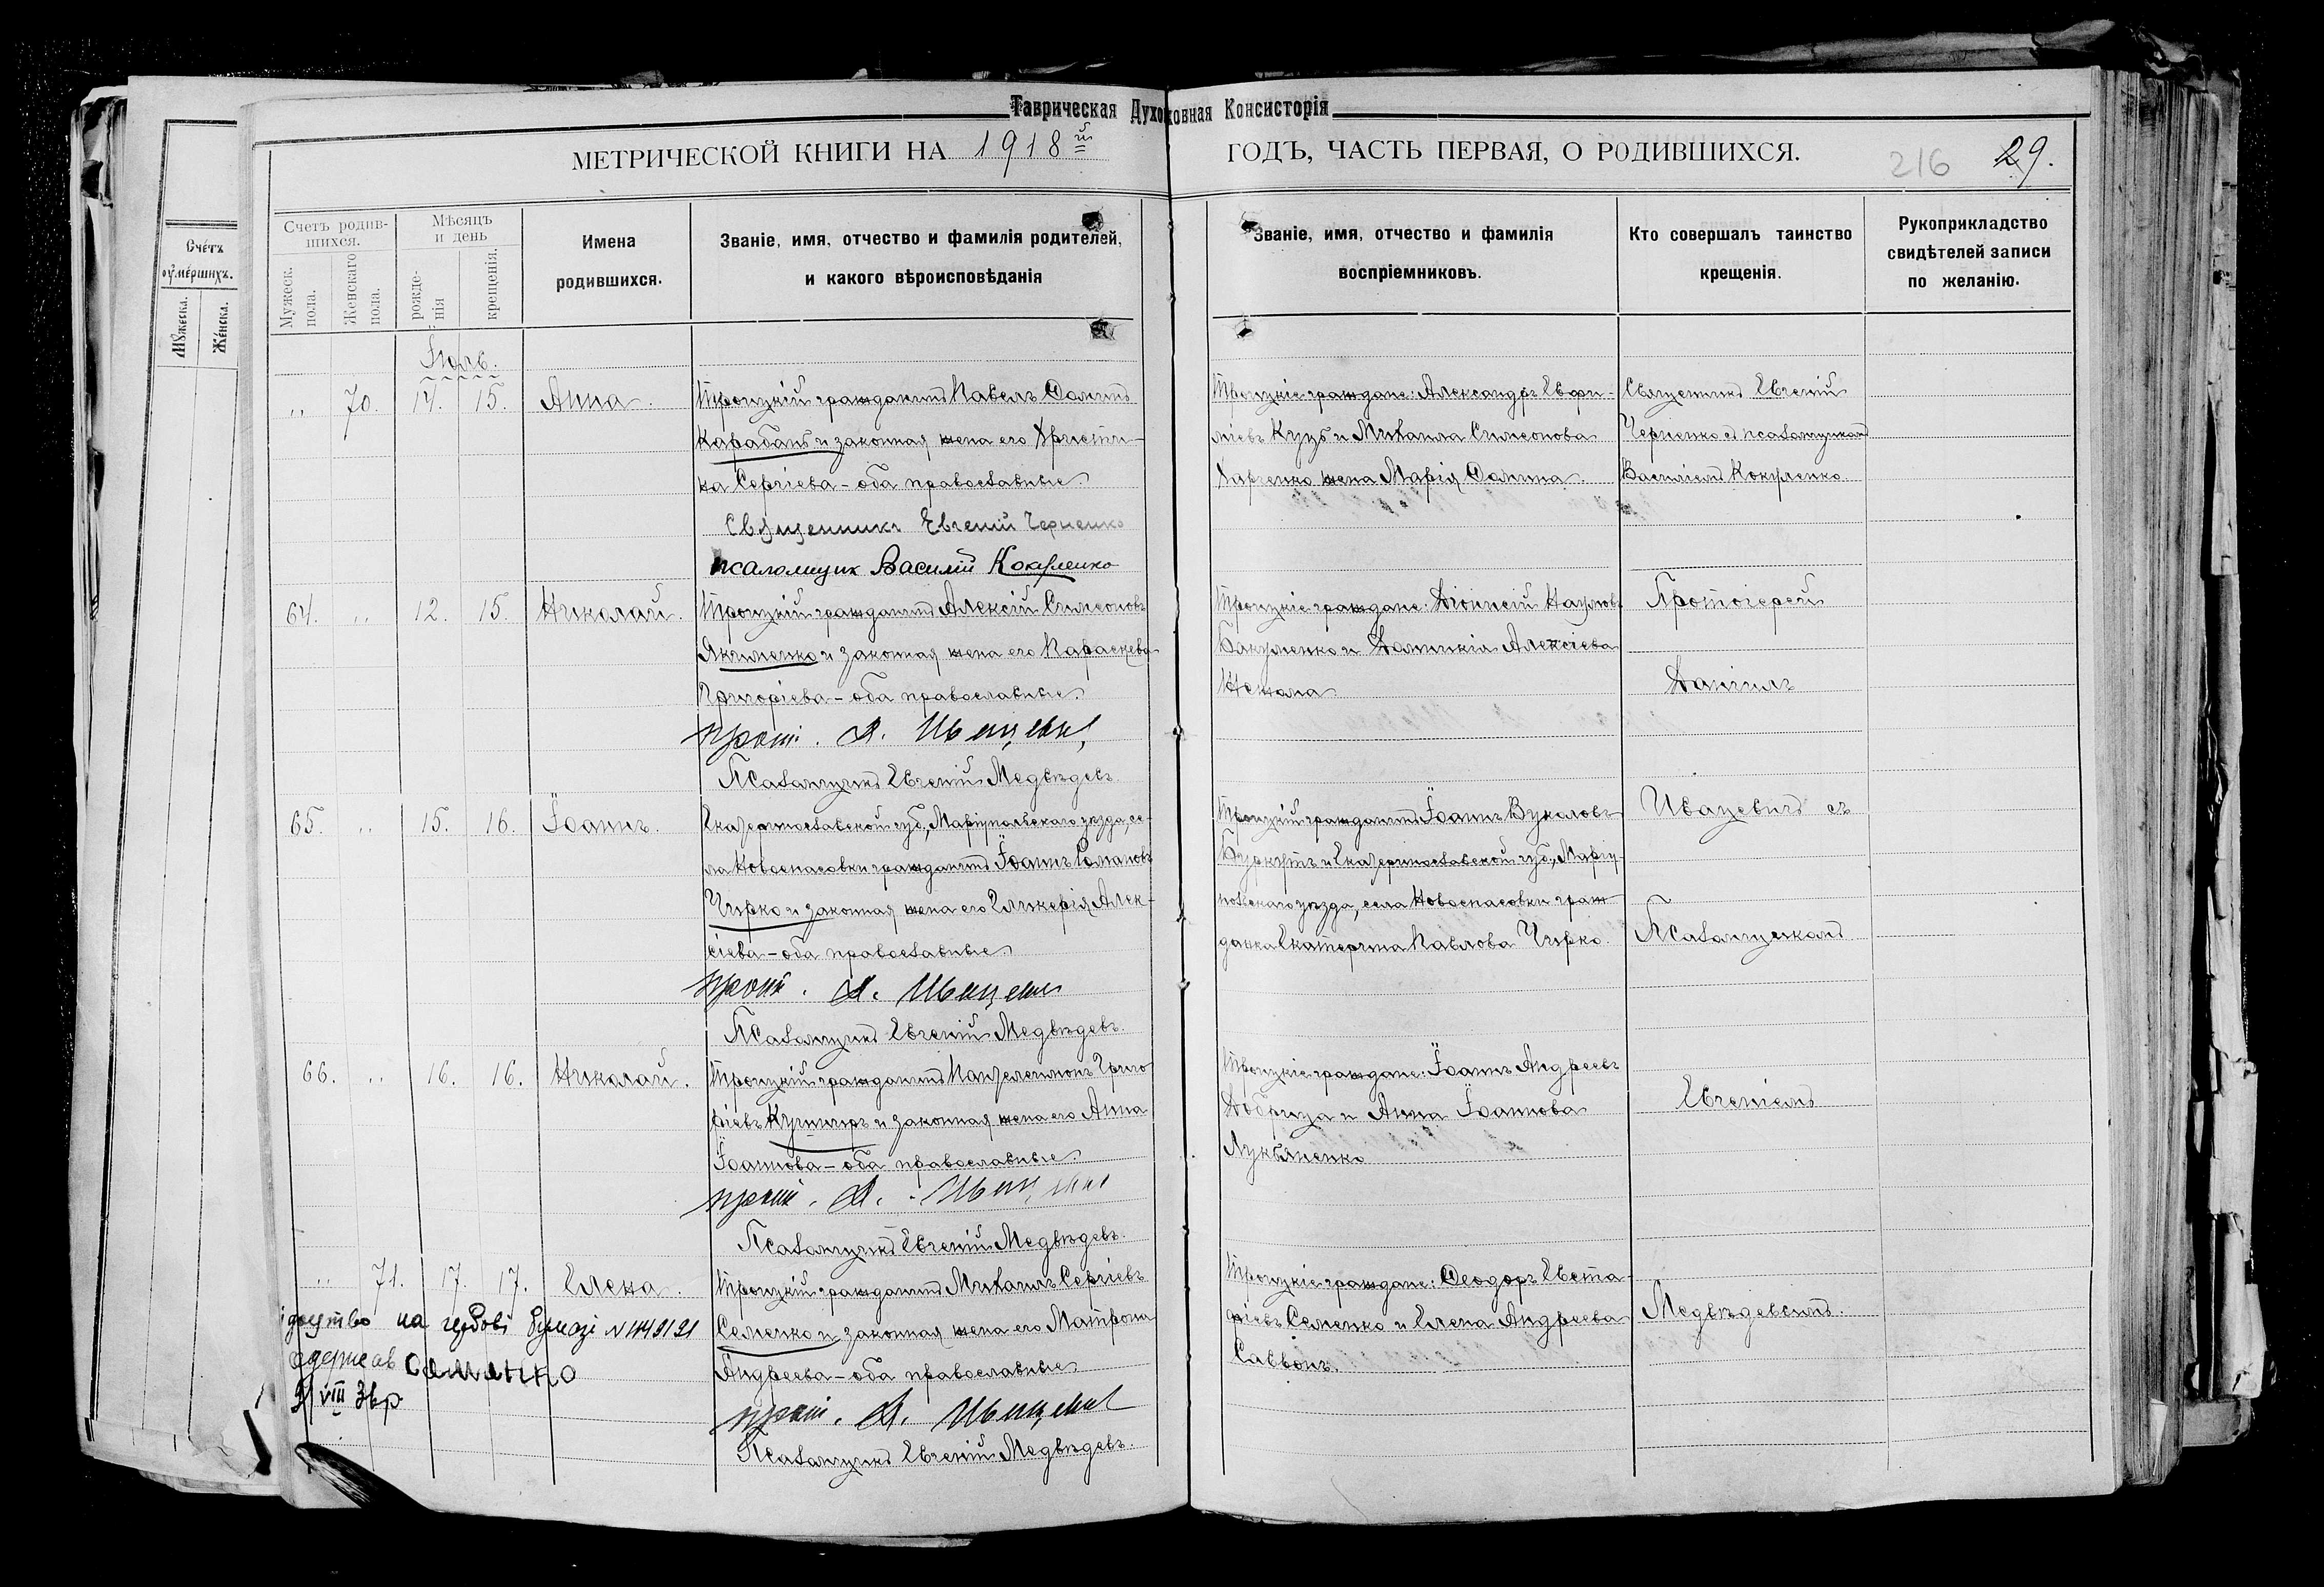 Таврическая Духовная Консисторія
МЕТРИЧЕСКОЙ КНИГИ НА 1918й ГОДЪ, ЧАСТЬ ПЕРВАЯ, О РОДИВШИХСЯ.
216 29.
Счетъ умершихъ.
Мужеска. Женска.
Счетъ родившихся.
Мужеск. пола.
Женскаго пола.
Мѣсяцъ и день
рожденія
крещенія.
Имена
родившихся.
Званіе, имя, отчество и фамилія родителей,
и какого вѣроисповѣданія
Званіе, имя, отчество и фамилія
воспріемниковъ.
Кто совершалъ таинство
крещенія.
Рукоприкладство
свидѣтелей записи
по желанію.
Іюль.
„ 70. 14. 15. Анна.
Троицкій гражданинъ Павелъ Ѳоминъ
Карабань и законная жена его Христи-
на Сергіева - оба православные.
Священникъ Евгеній Черненко
псаломщик Василій Кокуленко
Троицкіе граждане: Александръ Евфи-
міевъ Куцъ и Михаила Симеонова
Харченко жена Марія Ѳомина.
Священникъ Евгеній
Черненко съ псаломщикомъ
Василіемъ Кокуленко
64. „ 12. 15. Николай.
Троицкій гражданинъ Алексій Симеоновъ
Якименко и законная жена его Параскева
Григоріева - оба православные.
прот. Д. Иваневич
Псаломщикъ Евгеній Медвѣдевъ.
Троицкіе граждане: Діонисій Наумовъ
Бакуменко и Домникія Алексіева
Протоіерей
Даніилъ
65. „ 15. 16. Іоаннъ.
Екатеринославской губ., Маріупольскаго уѣзда, се-
ла Новоспасовки гражданинъ Іоаннъ Романовъ
Чирко и законная жена его Гликерія Алек-
сіева - оба православные.
прот. Д.
Псаломщикъ Евгеній Медвѣдевъ.
Троицкій гражданинъ Іоаннъ Вуколовъ
Буркутъ и Екатеринославской губ., Маріу-
польскаго уѣзда, села Новоспасовки граж-
данка Екатерина Павлова Чирко.
съ
Псаломщикомъ
66. „ 16. 16. Николай.
Троицкій гражданинъ Пантелеимонъ Григо
ріевъ Кушниръ и законная жена его Анна
Іоаннова - оба православные.
прот. Д.
Псаломщикъ Евгеній Медвѣдевъ.
Троицкіе граждане: Іоаннъ Андреевъ
Добрица и Анна Іоаннова
Лукьяненко
Евгеніемъ
„ 71. 17. 17. Елена.
Троицкій гражданинъ Михаилъ Сергіевъ
Семенко и законная жена его Матрона
Андреева - оба православные
прот. Д.
Псаломщикъ Евгеній Медвѣдевъ.
Троицкіе граждане: Ѳеодоръ Евста-
фіевъ Семенко и Елена Андреева
Саввонъ.
Медвѣдевымъ.
на гербові бумазі
одержав Семенко